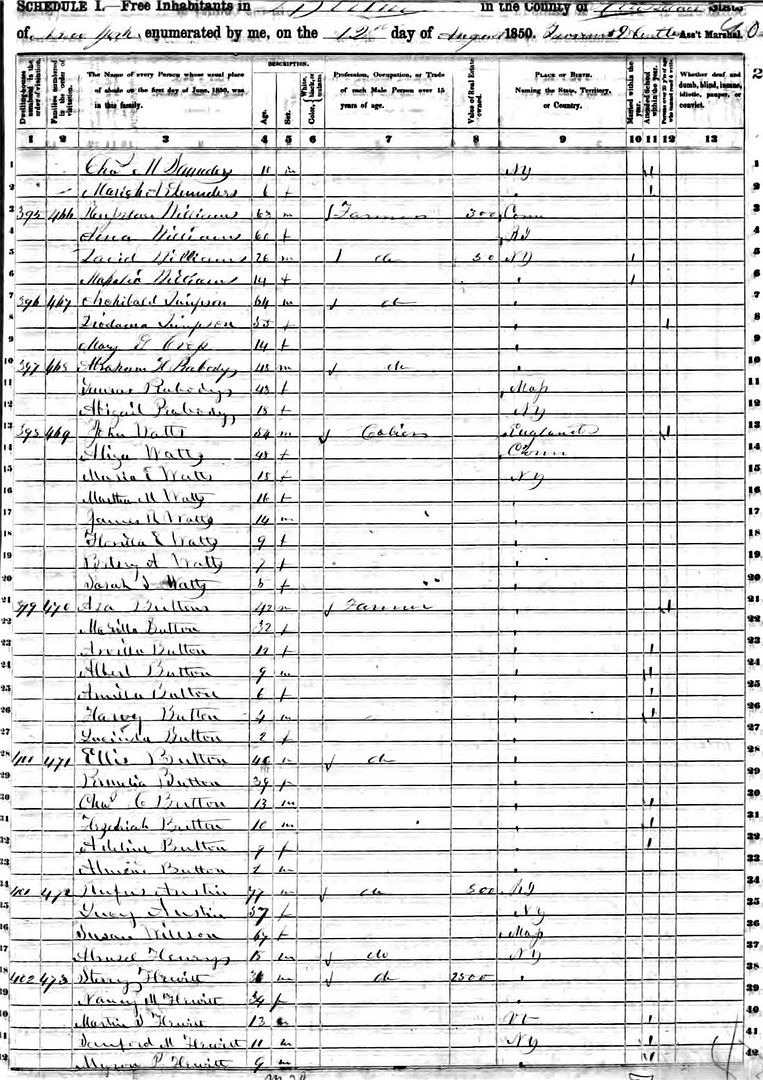 SCHEDULE I.—Free Inhabitants in in the County of State
of New York enumerated by me, on the 12th day of August 1850. Ass't Marshal.
Dwelling-houses numbered in the order of visitation.
Families numbered in the order of visitation.
The Name of every Person whose usual place of abode on the first day of June, 1850, was in this family.
DESCRIPTION.
Age.
Sex.
Color, White, black, or mulatto.
Profession, Occupation, or Trade of each Male Person over 15 years of age.
Value of Real Estate owned.
PLACE OF BIRTH. Naming the State, Territory, or Country.
Married within the year.
Attended School within the year.
Persons over 20 y'rs of age who cannot read & write.
Whether deaf and dumb, blind, insane, idiotic, pauper, or convict.
1 2 3 4 5 6 7 8 9 10 11 12 13
1 Chas M Saunders 11 m NY 1 1
2 Mariah A Saunders 6 f 1 2
3 395 466 Williams 63 m Farmer 300 Conn 3
4 Williams 60 f RI 4
5 David Williams 26 m do 50 NY 1 5
6 Williams 14 f 1 6
7 396 467 Archibald Simpson 64 m do 7
8 Simpson 53 f 1 8
9 Mary 14 f 9
10 397 468 Abraham H Peabody 48 m do 10
11 Peabody 43 f Mass 11
12 Abigail Peabody 15 f NY 12
13 398 469 John Watts 54 m England 1 13
14 Aliza Watts 48 f Conn 14
15 Maria E Watts 18 f NY 15
16 Martha M Watts 16 f 16
17 James R Watts 14 m 17
18 Florilla E Watts 9 f 18
19 Watts 7 f 19
20 Sarah J Watts 5 f 20
21 399 470 Asa Button 42 m Farmer 1 21
22 Button 32 f 22
23 Arvilla Button 12 f 1 23
24 Albert Button 9 m 1 24
25 Button 6 f 1 25
26 Harvey Button 4 m 1 26
27 Lucinda Button 2 f 27
28 400 471 Ellis Button 40 m do 28
29 Button 39 f 29
30 Chas C Button 13 m 1 30
31 Hezekiah Button 10 m 1 31
32 Adeline Button 9 f 1 32
33 Button 2 m 33
34 401 472 Rufus Austin 77 m do 500 RI 34
35 Lucy Austin 57 f NY 35
36 Susan Wilson 69 f Mass 36
37 Henry 15 m do NY 37
38 402 473 Sterry Hewitt m do 2500 38
39 Nancy M Hewitt 34 f 39
40 Martin Hewitt 13 Vt 1 40
41 Sanford M Hewitt 11 m NY 1 41
42 Myron P Hewitt 9 m 1 42